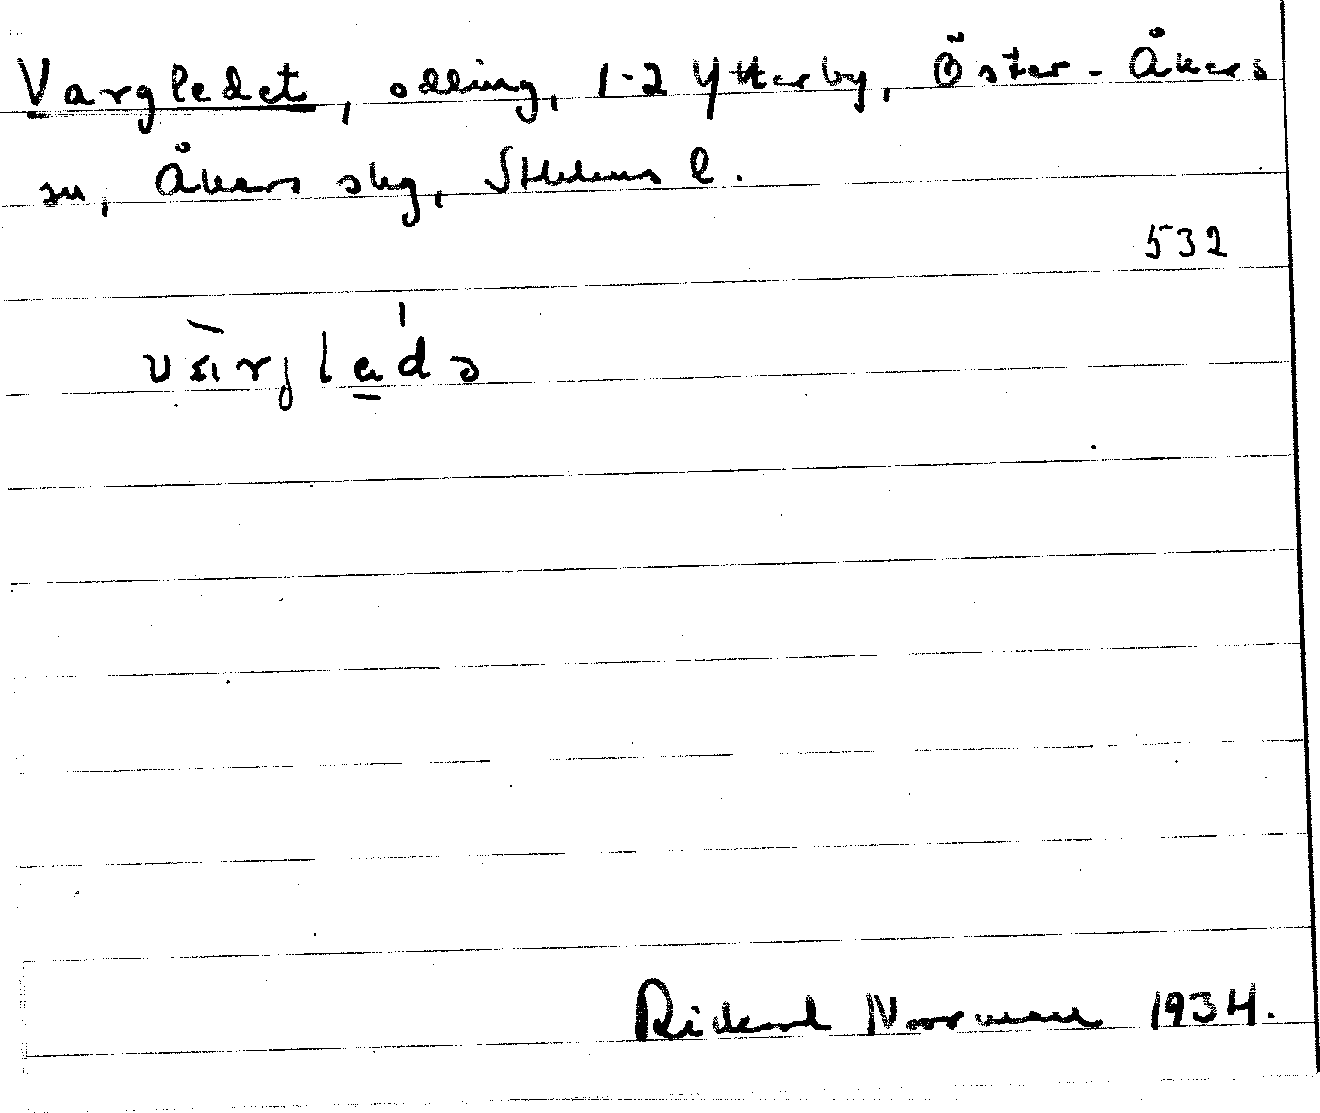 Vargledet, odling, 1-2 Ytterby, Öster-Åkers
sn, Åkers skg, Sthlms l.
532
vàrjlędə
Rickard Norrman 1934.